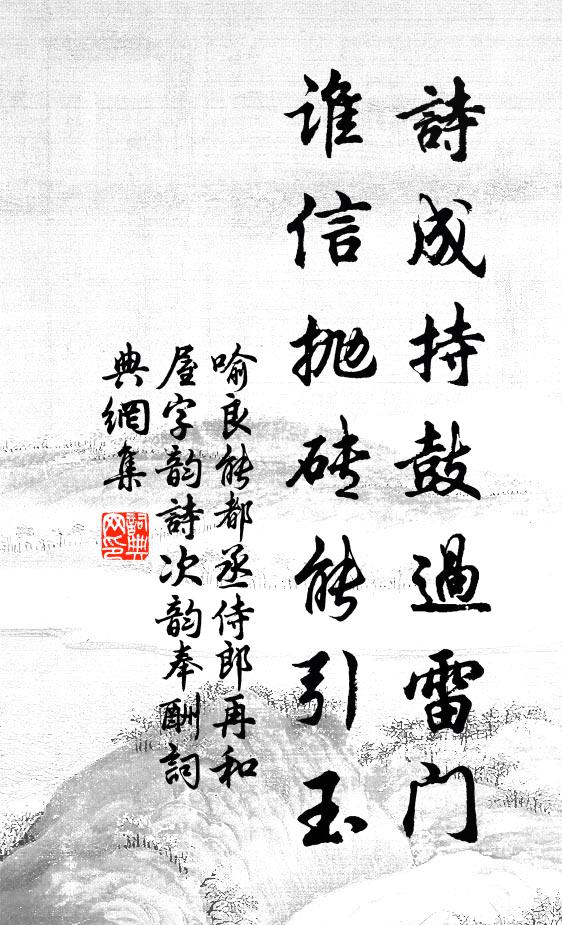 詩成持鼓過雷門
誰信抛砖能引玉
喻良能都丞侍郎再和
屋字韵詩次韵奉酬詞
典網集
詞典
网印